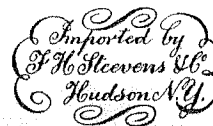 Imported by
F H Steevens & Co
Hudson N.Y.